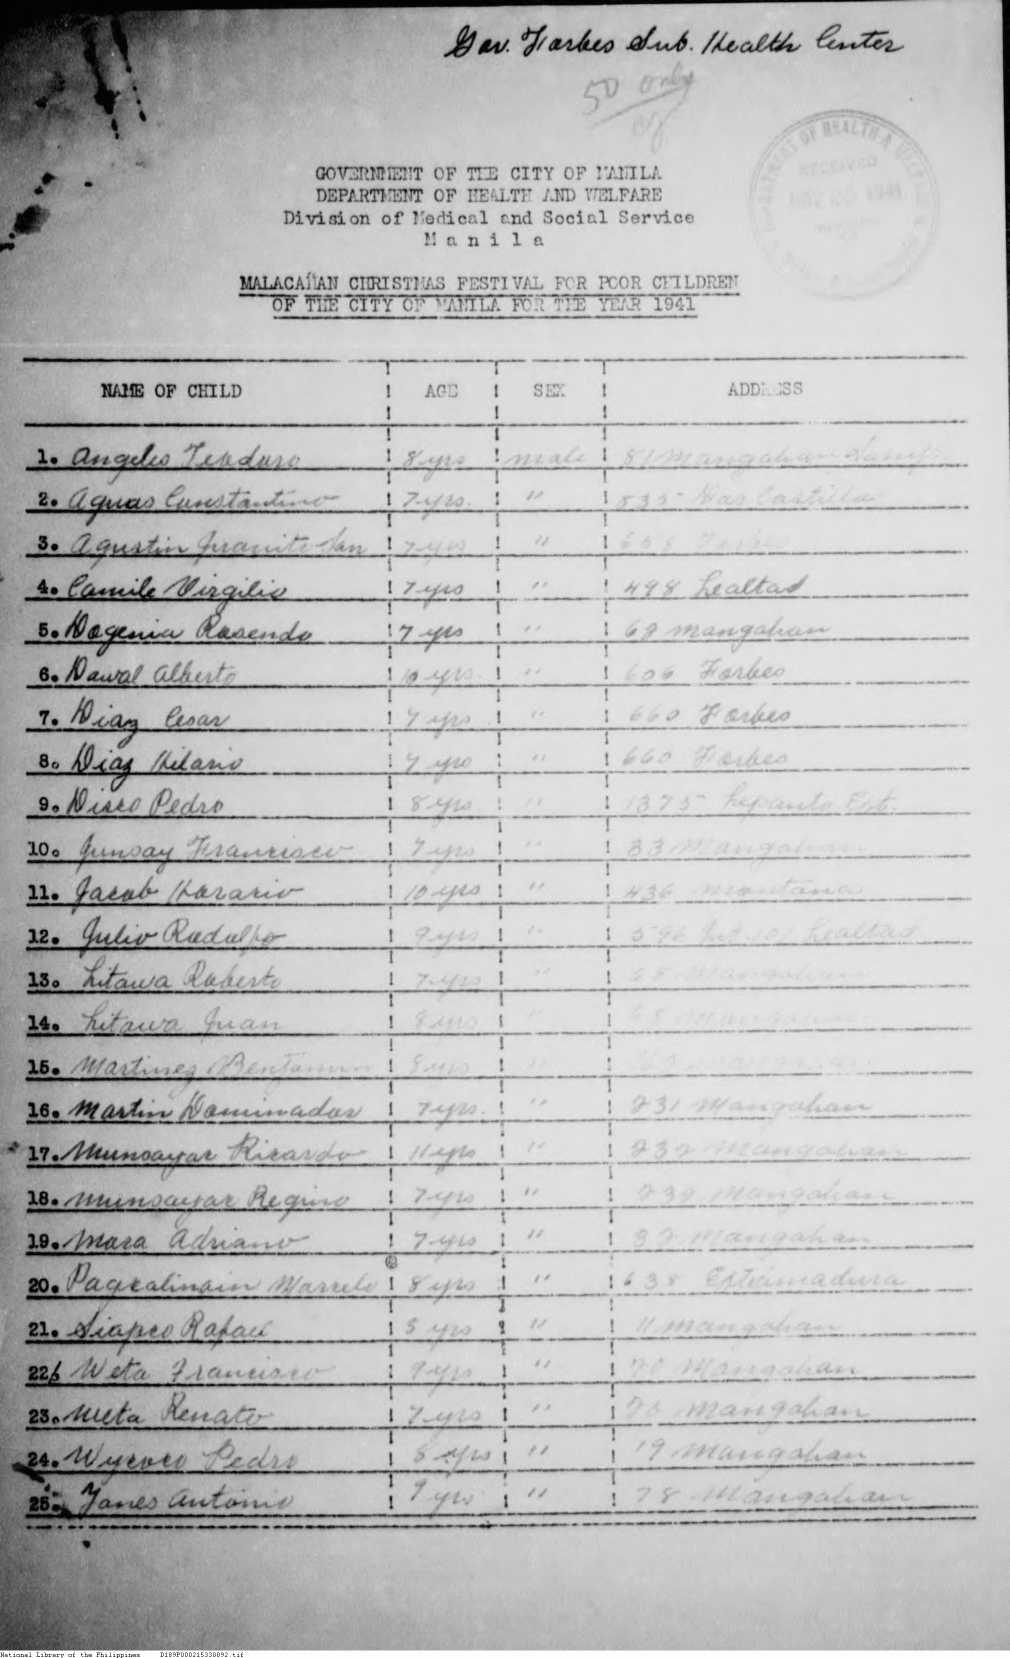 Gov. Forbes Sub. Health Center
50 only
DEPARTMENT OF HEALTH & WELFARE
RECEIVED
1941
GOVERNMENT OF THE CITY OF MANILA
DEPARTMENT OF HEALTH AND WELFARE
Division of Medical and Social Service
M a n i l a
MALACAÑAN CHRISTMAS FESTIVAL FOR POOR CHILDREN
OF THE CITY OF MANILA FOR THE YEAR 1941
NAME OF CHILD AGE SEX ADDRESS
1. Angeles Teodoro 8 yrs male 81 Mangahan
2. Aguas Constantino 7 yrs. " 535 Castilla
3. Agustin Juanito San 7 yrs " 668 Forbes
4. Camilo Virgilio 7 yrs " 498 Lealtad
5. Dogenia Rosendo 7 yrs " 69 Mangahan
6. Dawal Alberto 10 yrs. " 606 Forbes
7. Diaz Cesar 7 yrs " 660 Forbes
8. Diaz Hilario 7 yrs " 660 Forbes
9. Disco Pedro 8 yrs " 1375 Lepanto Ext.
10. Junsay Francisco 7 yrs " 33 Mangahan
11. Jacob Horacio 10 yrs " 436 Montana
12. Julio Rodolfo 9 yrs " 596 Int. Lealtad
13. Litawa Roberto 7 yrs " 68 Mangahan
14. Litawa Juan 8 yrs " 68 Mangahan
15. Martinez Benjamin 8 yrs " Mangahan
16. Martin Dominador 7 yrs. " 231 Mangahan
17. Munsayac Ricardo 11 yrs " 232 Mangahan
18. Munsayac Regino 7 yrs " 232 Mangahan
19. Mora Adriano 7 yrs " 32 Mangahan
20. Pagcalinawin Marcelo 8 yrs " 638 Extramadura
21. Siapco Rafael 8 yrs " 11 Mangahan
22. Weta Francisco 9 yrs " 70 Mangahan
23. Weta Renato 7 yrs " 70 Mangahan
24. Wycoco Pedro 8 yrs " 19 Mangahan
25. Yanes Antonio 9 yrs " 78 Mangahan
National Library of the Philippines D189P000215330892.tif